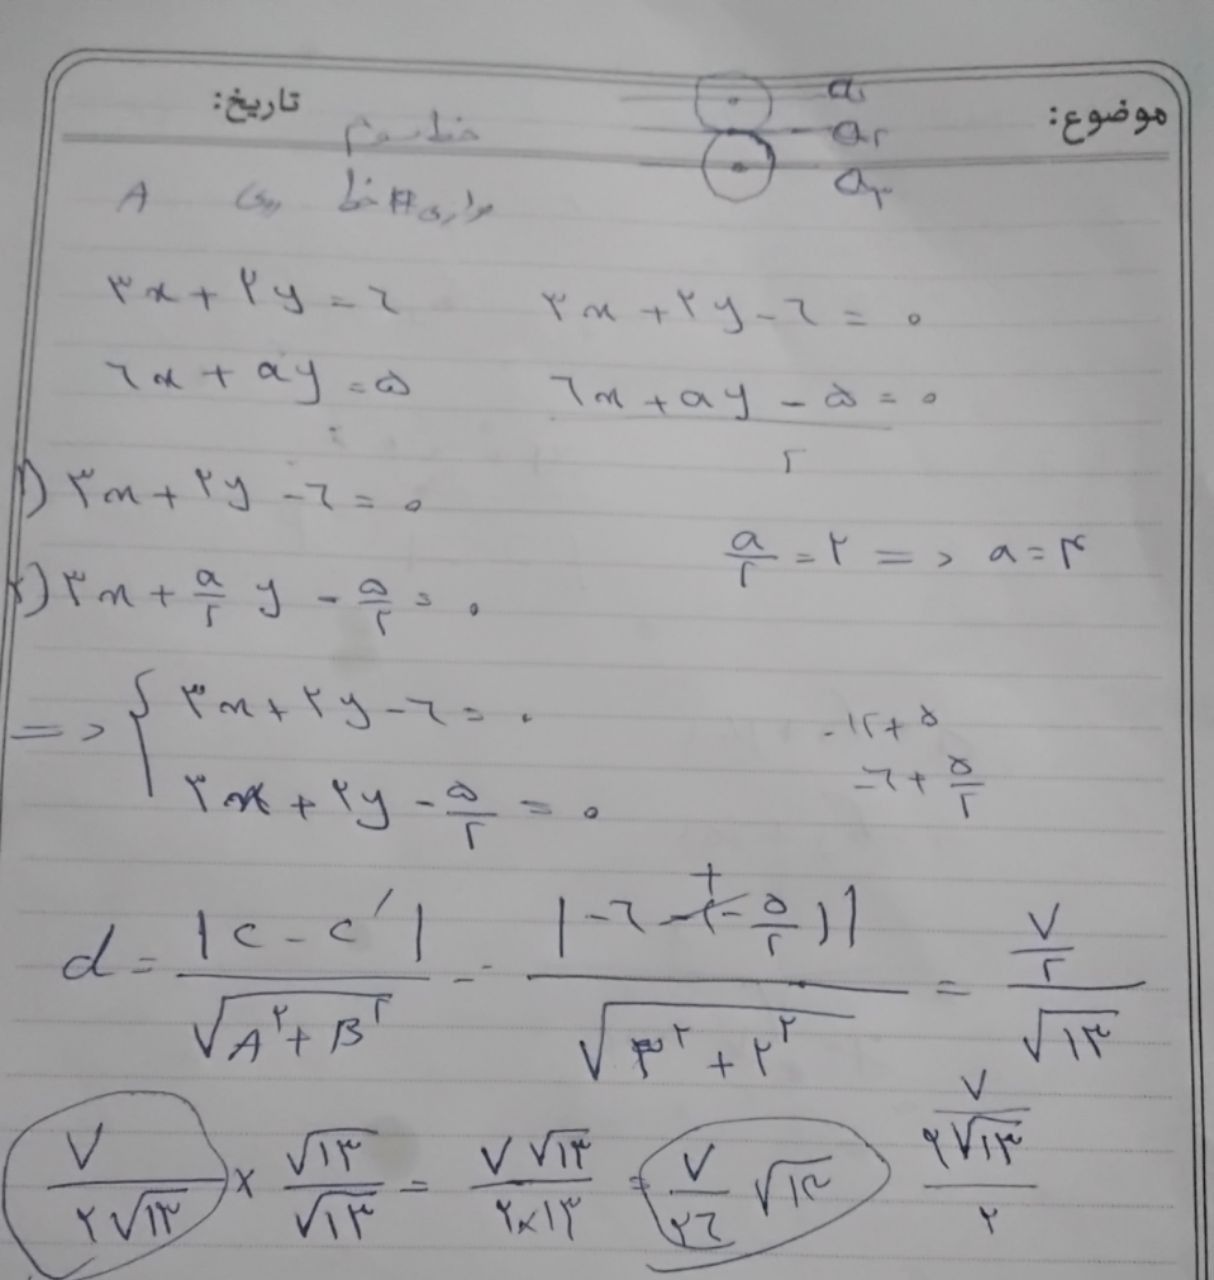 موضوع:
تاریخ:
a₁
a₂
a₃
خط سوم
موازی # خط روی A
۳x + ۲y = ۶    ۳x + ۲y - ۶ = ۰
۶x + ay = ۵    ۶x + ay - ۵ = ۰
۲
۱) ۳x + ۲y - ۶ = ۰
a/۲ = ۲ => a = ۴
۲) ۳x + a/۲ y - ۵/۲ = ۰
=> { ۳x + ۲y - ۶ = ۰
-۱۲ + ۵
۳x + ۲y - ۵/۲ = ۰
-۶ + ۵/۲
d = |c - c'| / √(A² + B²) = |-۶ + (-(-۵/۲))| / √(۳² + ۲²) = (۷/۲) / √۱۳
۷/(۲√۱۳) × √۱۳/√۱۳ = ۷√۱۳/(۲×۱۳) = ۷/۲۶ √۱۳
(۷/(۲√۱۳))/۲